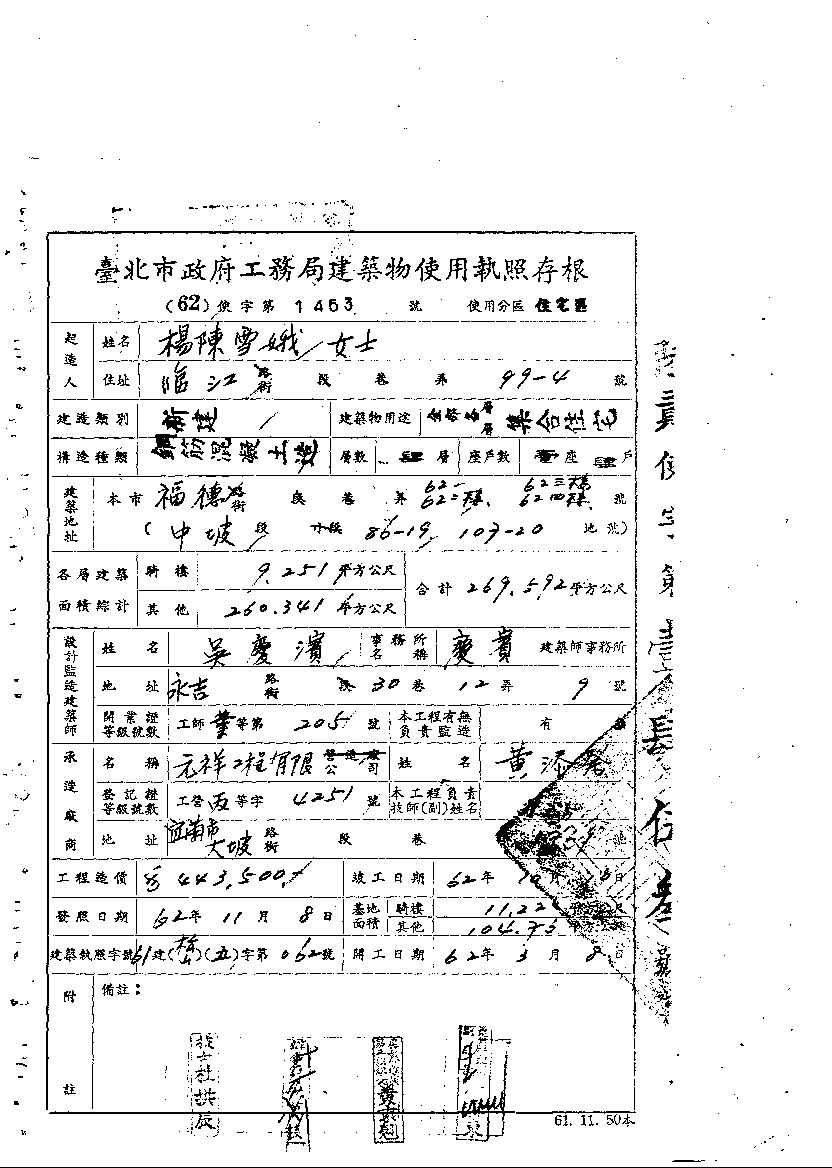 臺北市政府工務局建築物使用執照存根
(62) 使字第 1453 號 使用分區 住宅區
起造人 姓名 楊陳雪娥 女士
住址 臨江 路街 段 巷 弄 99-4 號
建造類別 新建 建築物用途 全部各層層 集合住宅
構造種類 鋼筋混凝土造 層數 四層 座戶數 壹座 戶
建築地址 本市 福德 路街 段 巷 弄 62一 62二樓 62三樓 62四樓 號
(中坡段 小段 86-19 107-20 地號)
各層建築面積綜計 騎樓 9.251 平方公尺 合計 269.592 平方公尺
其他 260.341 平方公尺
設計監造建築師 姓名 吳慶濱 事務所名稱 慶賓 建築師事務所
地址 永吉 路街 段 30 巷 12 弄 9 號
開業證等級號數 工師 等第 205 號 本工程有無負責監造 有
承造廠商 名稱 元祥工程有限營造廠公司 姓名 黃添
登記證等級號數 工營丙等字 4251 號 本工程負責技師(副)姓名
地址 宜蘭市 大坡 路街 段 巷 號
工程造價 443,500 竣工日期 62年 月 日
發照日期 62年 11月 8日 基地面積 騎樓 11.22
其他 104.75
建築執照字號 61建( )(五)字第 062號 開工日期 62年 3月 8日
附註 備註:
技士杜拱辰
61. 11. 50本